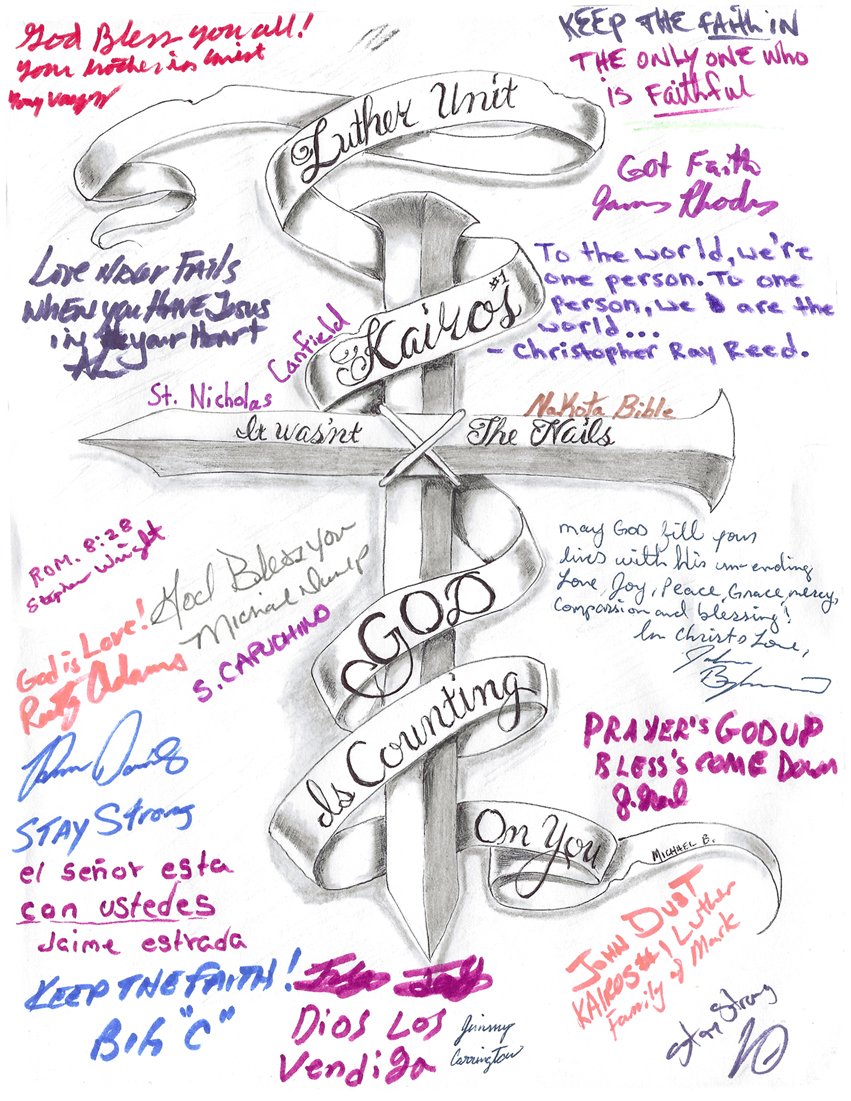 God Bless you all!
your brother in Christ
KEEP THE FAITH IN
THE ONLY ONE WHO
is Faithful
Luther Unit
Got Faith
James Rhodes
Love Never Fails
WHEN you HAVE Jesus
in your Heart
AL
To the world, we're
one person. To one
person, we are the
world...
- Christopher Ray Reed.
Kairos #1
Canfield
St. Nicholas
NaKota Bible
It was'nt The Nails
ROM. 8:28
Stephen Wright
God Bless you
Michael
S. CAPUCHINO
may God fill your
lives with his un-ending
Love, Joy, Peace, Grace, mercy,
Compassion and blessing!
In Christs Love,
John
GOD
God is Love!
Rusty Adams
Is Counting
PRAYER'S GO UP
BLESS'S COME DOWN
On You
MICHAEL B.
STAY Strong
el señor esta
con ustedes
Jaime estrada
JOHN DUST
KAIROS #1 Luther
Family of Mark
KEEP THE FAITH!
Bih "C"
Dios Los
Vendiga
Jimmy
Carrington
Stay Strong